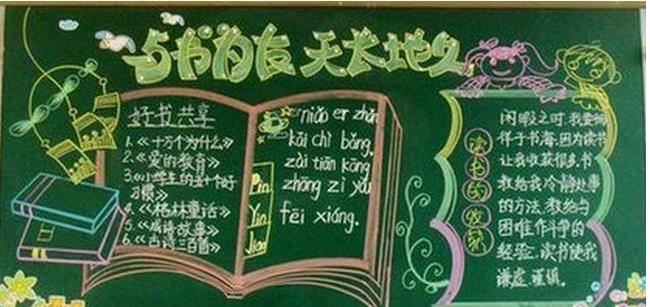 与书为友 天长地久
好书共享
1.《十万个为什么》
2.《爱的教育》
3.《小学生的五十个好
习惯》
4.《格林童话》
5.《成语故事》
6.《古诗三百首》
Pin
Yin
Jiao
niǎo er zhǎn
kāi chì bǎng,
zài tiān kōng
zhōng zì yóu
fēi xiáng.
读书的收获
闲暇之时,我要畅
得于书海,因为读书
让我收获很多,书
教给我冷静处事
的方法,教给与
困难作斗争的
经验,读书使我
谦虚、谨慎。